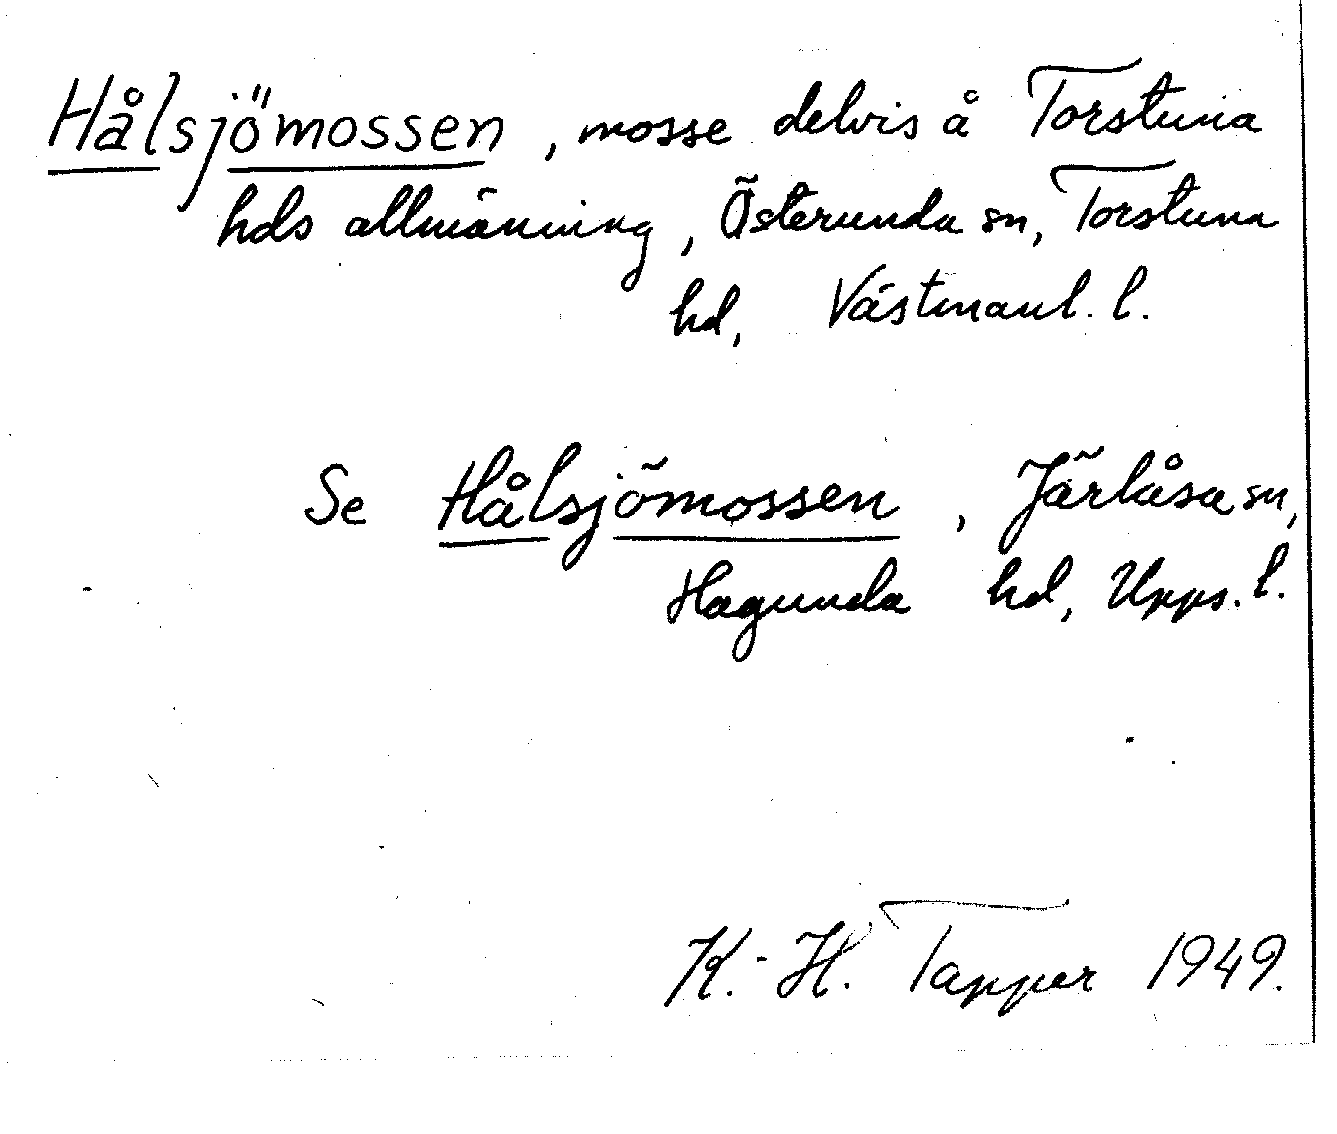 Hålsjömossen, mosse delvis å Torstuna
hds allmänning, Österunda sn, Torstuna
hd, Västmanl. l.
Se Hålsjömossen, Järlåsa sn,
Hagunda hd, Upps. l.
K.-H. Tapper 1949.